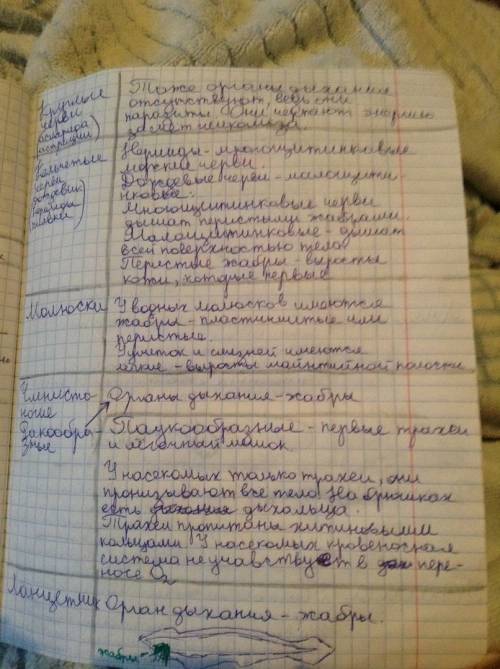 Круглые
черви
(аскарида
острица)
Тоже органы дыхания
отсутствуют, ведь они
паразиты. Они черпают энергию
за счёт
Кольчатые
черви
Нереиды - многощетинковые
морские черви.
Дождевые черви - малощети-
нковые.
Многощетинковые черви
дышат перистыми жабрами.
Малощетинковые - дышат
всей поверхностью тела
Перистые жабры - выросты
кожи, которые первые
Молюски
У водных молюсков имеются
жабры - пластинчатые или
перистые.
У улиток и слизней имеются
лёгкие - выросты мантийной полости
Членисто-
ногие
Ракообра-
зные
Органы дыхания - жабры
Паукообразные - первые трахеи
и лёгочный мешок
У насекомых только трахеи, они
пронизывают все тело. На брюшках
есть дыхальца.
Трахеи пропитаны хитиновыми
кольцами. У насекомых кровеносная
система не учавствует в пере-
носе O₂
Ланцетник
Орган дыхания - жабры.
жабры